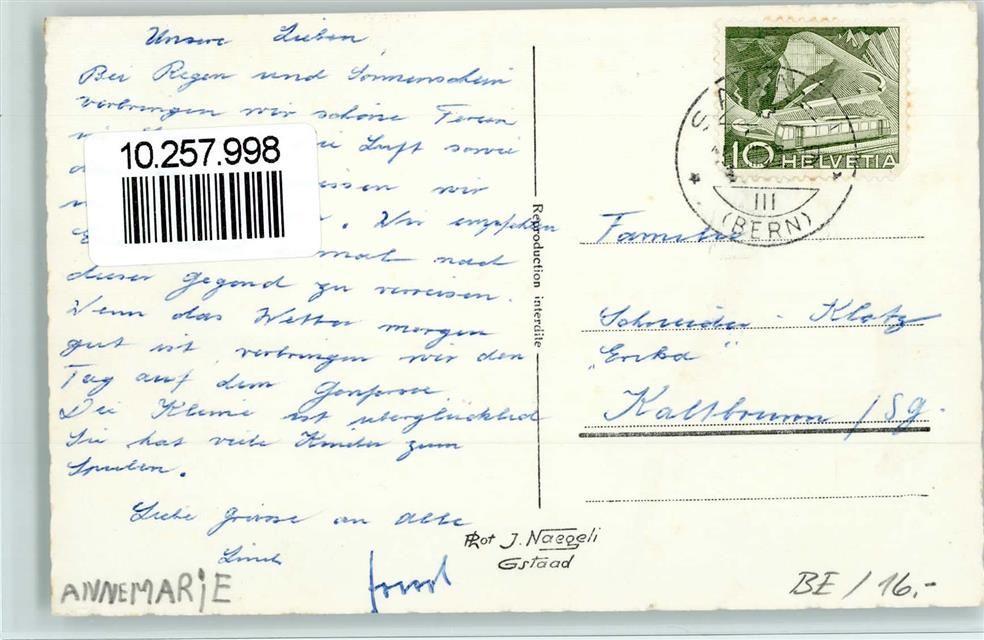 Unsere Lieben
Bei Regen und Sonnenschein
verbringen wir schöne Ferien
Luft sowie
wir
. Wir empfehlen
mal nach
dieser Gegend zu verreisen.
Wenn das Wetter morgen
gut ist, verbringen wir den
Tag auf dem Genfersee
Die Kleine ist überglücklich
Sie hat viele Kinder zum
Spielen.
Liebe Grüsse an alle
ANNEMARIE
10.257.998
Reproduction interdite
Phot J. Naegeli
Gstaad
10 HELVETIA
III
(BERN)
Familie
Schneider - Klotz
"Erika"
Kaltbrunn / Sg.
BE / 16.-